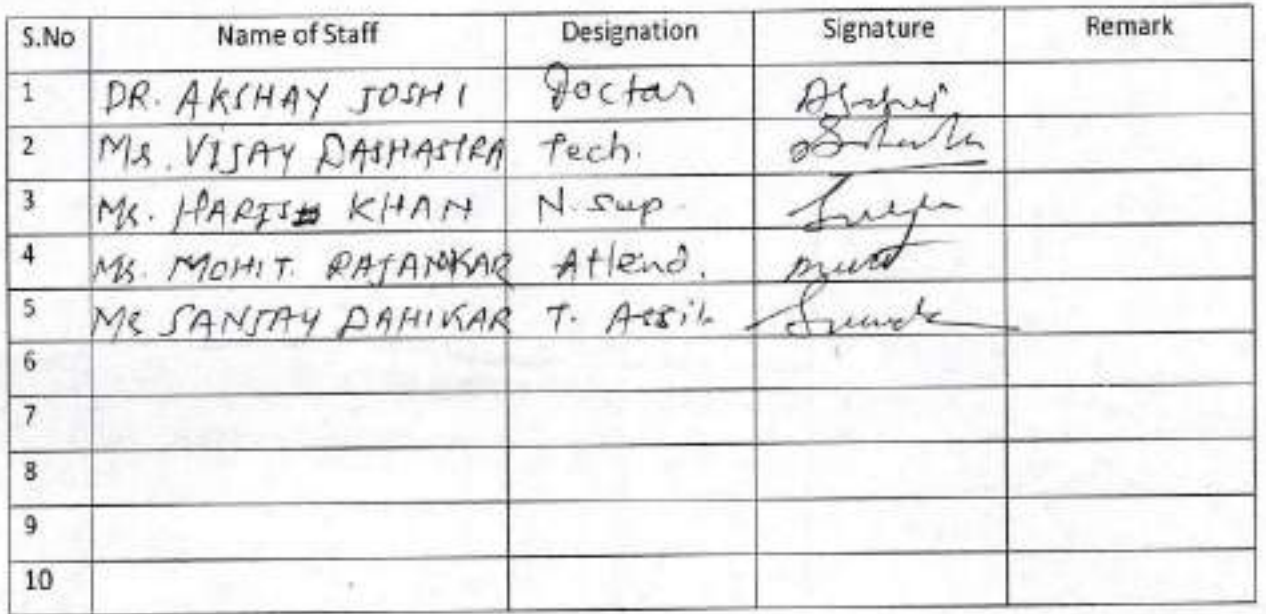 S.No Name of Staff Designation Signature Remark
1 DR. AKSHAY JOSHI Doctar
2 Mr. VIJAY DASHASTRA Tech.
3 Mr. HARIS KHAN N. Sup.
4 Mr. MOHIT. RAJANKAR Attend.
5 Mr SANJAY DAHIKAR T. Assit
6
7
8
9
10